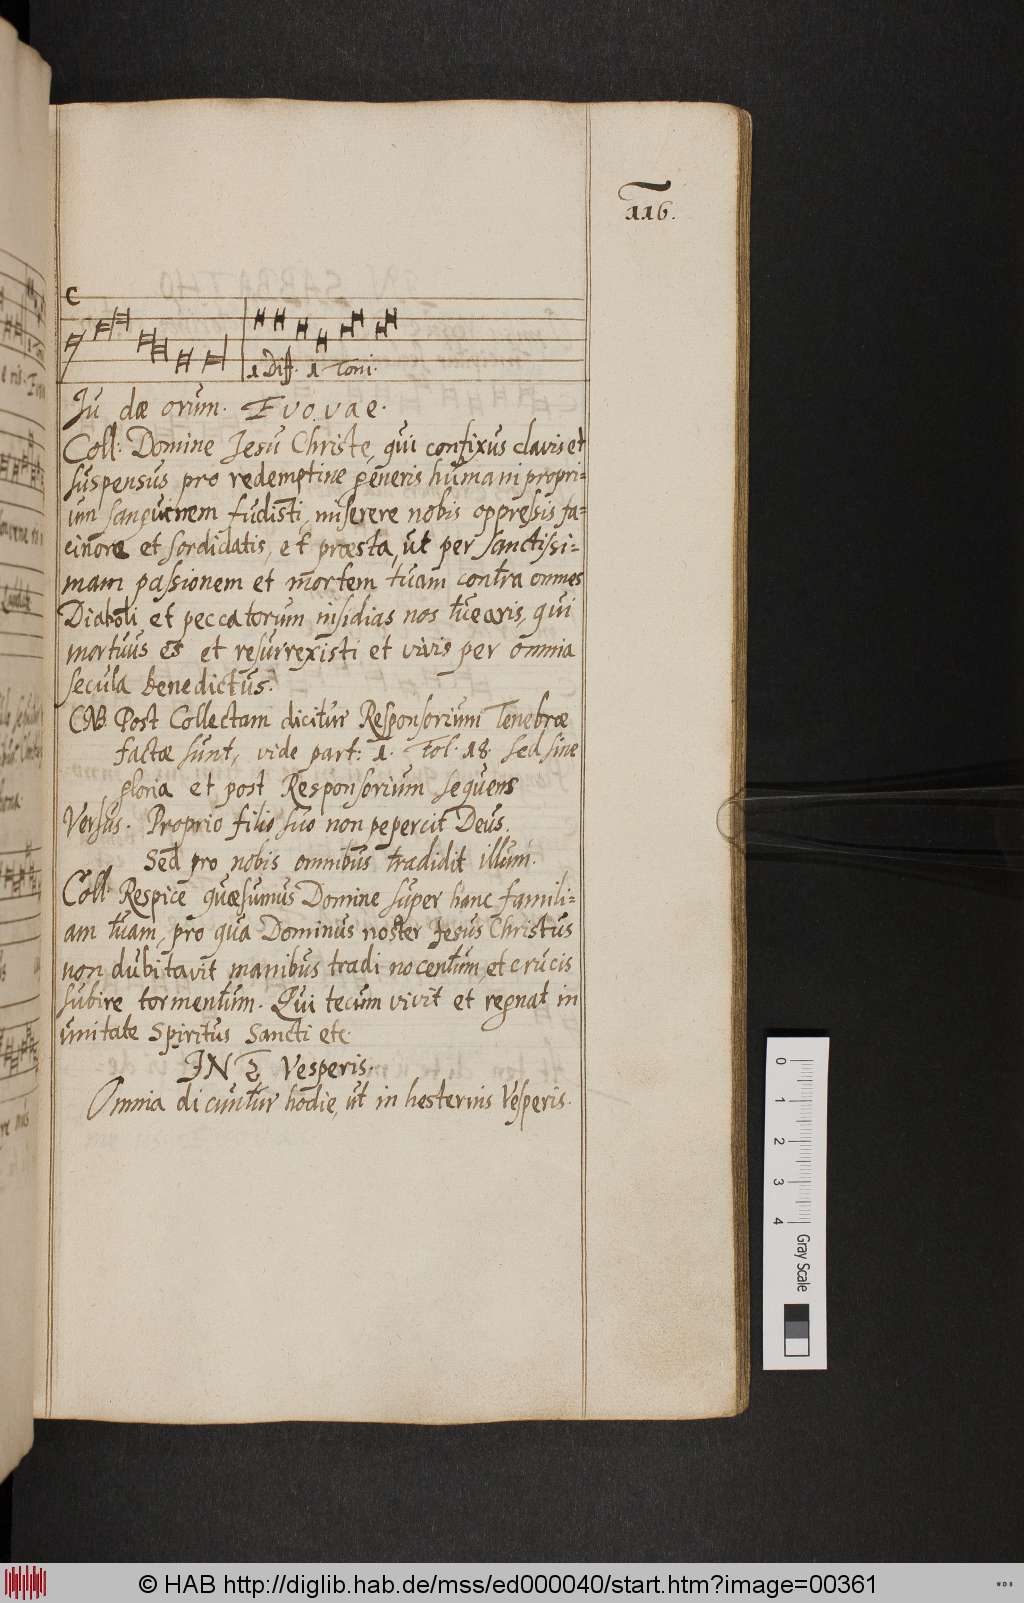 116.
C
1 Diff. 1 Toni.
Iu dæ orum. Evovae.
Coll: Domine Jesu Christe, qui confixus clavis et
suspensus pro redemptine generis humani propri=
um sanguinem fudisti, miserere nobis oppressis fa=
cinore et sordidatis, et præsta, ut per sanctissi=
mam passionem et mortem tuam contra omnes
Diaboli et peccatorum insidias nos tuearis, qui
mortuus es et resurrexisti et vivis per omnia
secula benedictus.
NB Post Collectam dicitur Responsorium Tenebræ
factæ sunt, vide part: 1. Fol. 18. sed sine
gloria et post Responsorium sequens
Versus. Proprio filio suo non pepercit Deus.
Sed pro nobis omnibus tradidit illum.
Coll: Respice quæsumus Domine super hanc famili=
am tuam, pro qua Dominus noster Jesus Christus
non dubitavit manibus tradi nocentum, et crucis
subire tormentum. Qui tecum vivit et regnat in
unitate Spiritus Sancti etc
IN 2 Vesperis.
Omnia dicuntur hodie, ut in hesternis Vesperis.
0 1 2 3 4 Gray Scale
© HAB http://diglib.hab.de/mss/ed000040/start.htm?image=00361